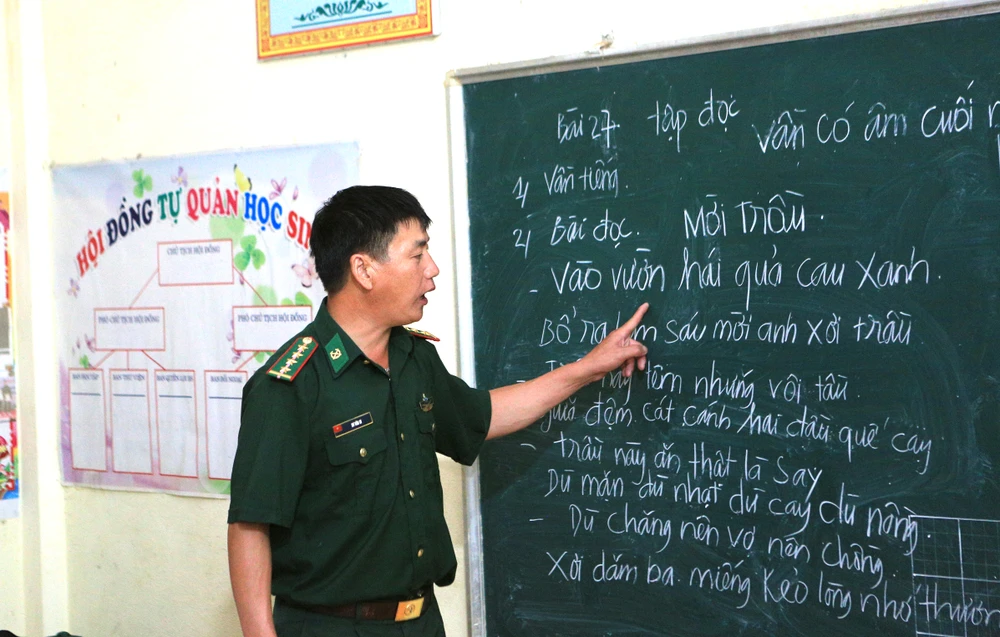 HỘI ĐỒNG TỰ QUẢN HỌC SIN
CHỦ TỊCH HỘI ĐỒNG
PHÓ CHỦ TỊCH HỘI ĐỒNG
PHÓ CHỦ TỊCH HỘI ĐỒNG
BAN HỌC TẬP
BAN THƯ VIỆN
BAN QUYỀN LỢI
BAN ĐỐI NGOẠI
Bài 27. tập đọc
Vần có âm cuối
1, Vần tiếng.
2, Bài đọc. Mời Trầu.
- Vào vườn hái quả cau xanh.
Bổ ra làm sáu mời anh xơi trầu
này têm những vôi tầu
giữa đệm cát cánh hai đầu quế cay
- trầu này ăn thật là say
Dù mặn dù nhạt dù cay dù nồng.
- Dù chẳng nên vợ nên chồng
Xơi dăm ba miếng kẻo lòng nhớ thươn